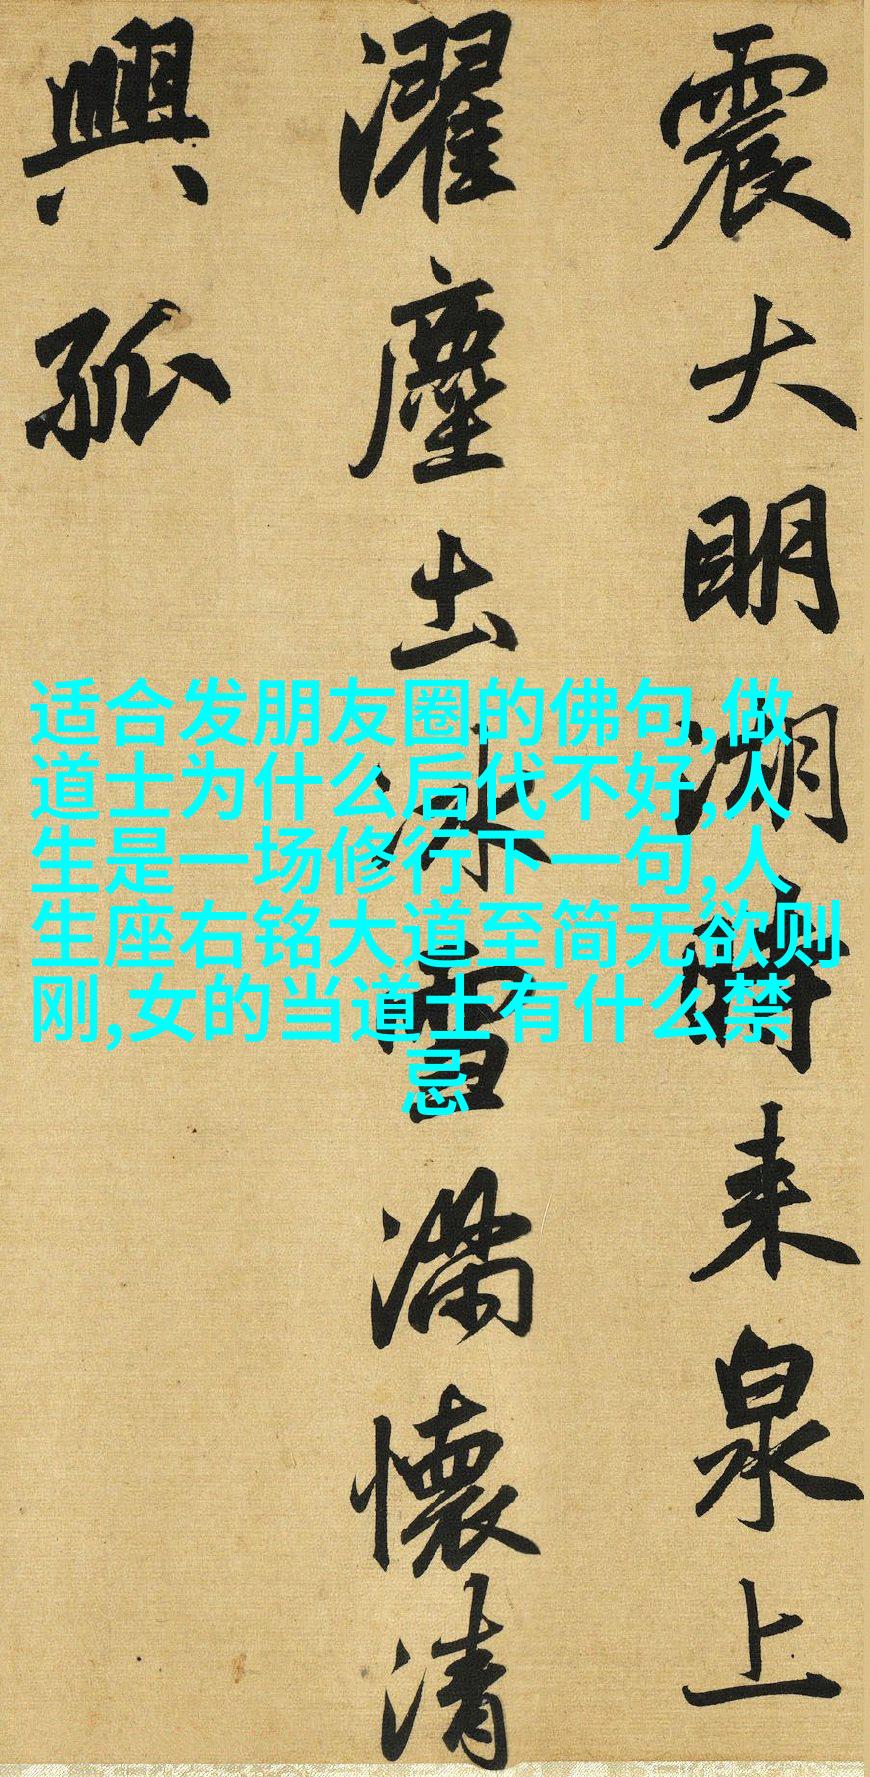 震大明湖時来泉上
濯塵土冰雪滿懷清
興孤
适合发朋友圈的佛句,做
道士为什么后代不好,人
生是一场修行下一句,人
生座右铭大道至简无欲则
刚,女的当道士有什么禁
忌